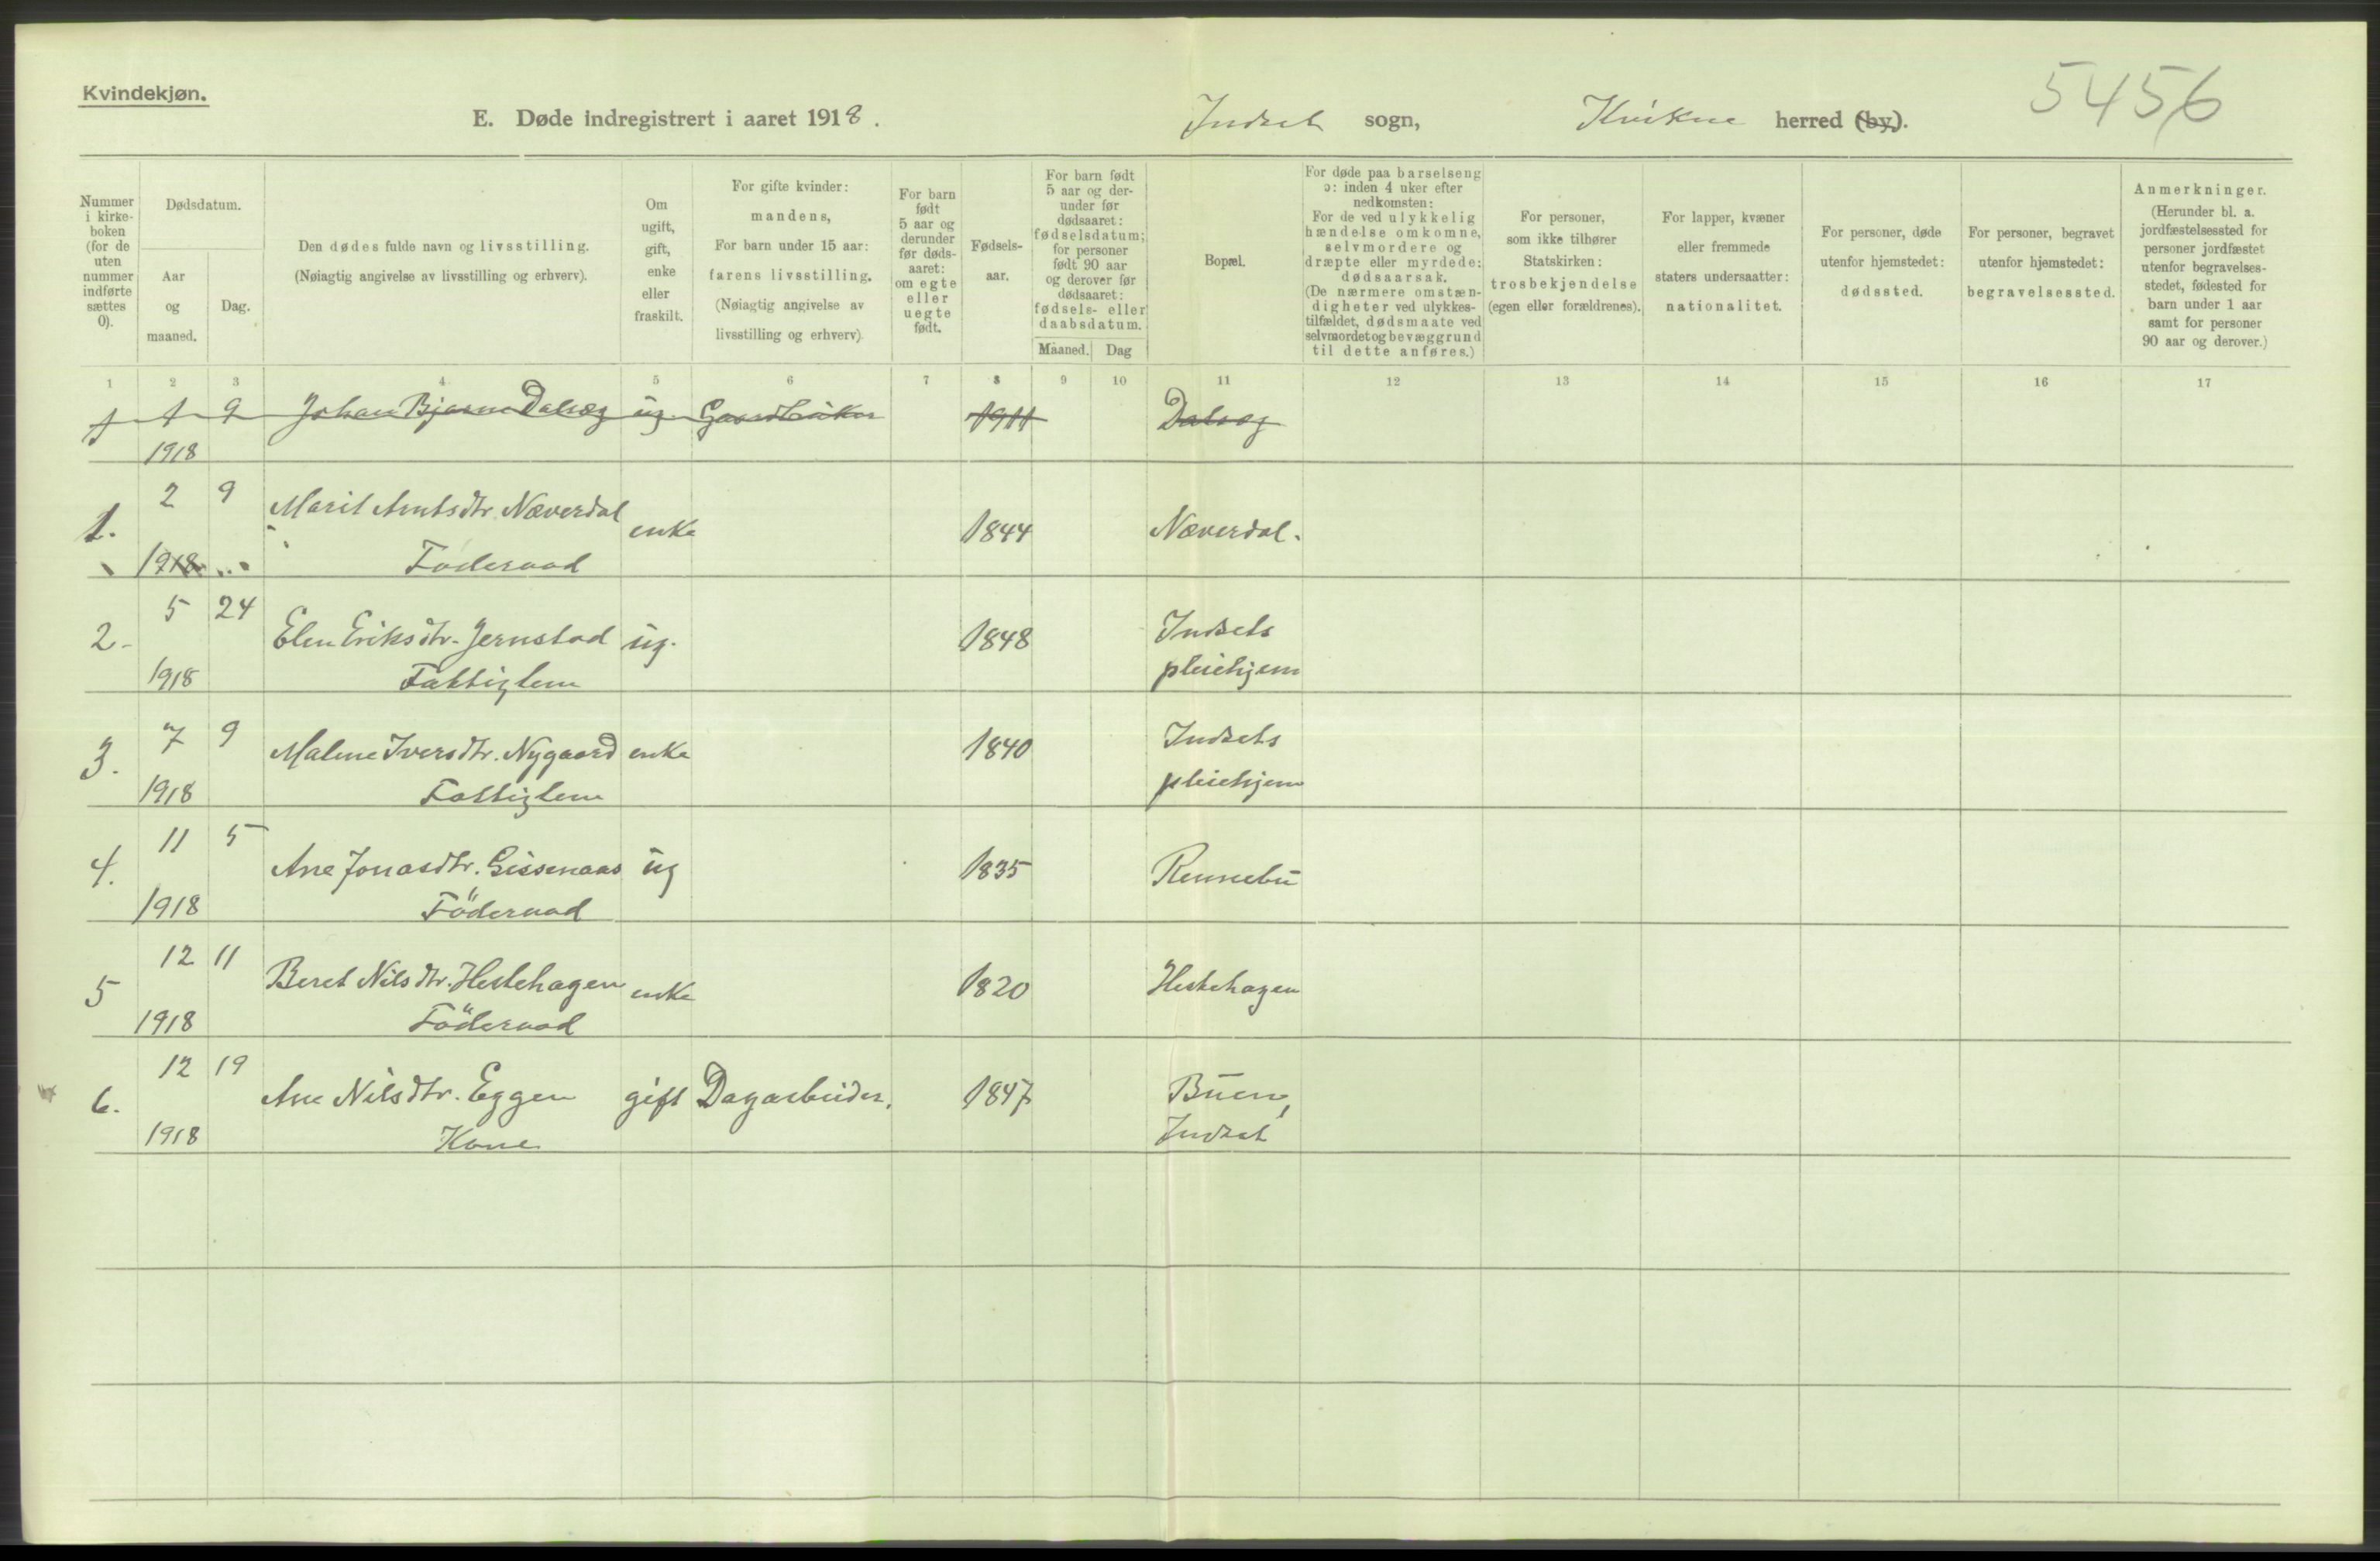 Kvindekjøn.
E. Døde indregistrert i aaret 1918.
Indset sogn,
Kvikne herred (by).
5456
Nummer i kirke-boken (for de uten nummer indførte sættes 0).
Dødsdatum.
Aar og maaned.
Dag.
Den dødes fulde navn og livsstilling.
(Nøiagtig angivelse av livsstilling og erhverv).
Om ugift, gift, enke eller fraskilt.
For gifte kvinder:
mandens,
For barn under 15 aar:
farens livsstilling.
(Nøiagtig angivelse av
livsstilling og erhverv).
For barn født 5 aar og derunder før døds-aaret: om egte eller uegte født.
Fødsels-aar.
For barn født 5 aar og der-under før dødsaaret: fødselsdatum; for personer født 90 aar og derover før dødsaaret: fødsels- eller daabsdatum.
Maaned.
Dag
Bopæl.
For døde paa barselseng ɔ: inden 4 uker efter nedkomsten:
For de ved ulykkelig hændelse omkomne, selvmordere og dræpte eller myrdede: dødsaarsak.
(De nærmere omstæn-digheter ved ulykkes-tilfældet, dødsmaate ved selvmordet og bevæggrund til dette anføres.)
For personer, som ikke tilhører Statskirken: trosbekjendelse (egen eller forældrenes).
For lapper, kvæner eller fremmede staters undersaatter: nationalitet.
For personer, døde utenfor hjemstedet: dødssted.
For personer, begravet utenfor hjemstedet: begravelsessted.
Anmerkninger.
(Herunder bl. a. jordfæstelsessted for personer jordfæstet utenfor begravelses-stedet, fødested for barn under 1 aar samt for personer 90 aar og derover.)
1 2 3 4 5 6 7 8 9 10 11 12 13 14 15 16 17
1 1 9 Johan Bjarne Dalsæg ug. Gaardbruker 1911 Dalsæg
1918
2 9
1. Marit Arntsdtr. Næverdal enke 1844 Næverdal.
1918 Föderaad
5 24
2- Elen Eriksdtr. Jernstad ug. 1848 Indsets
1918 Fattiglem pleiehjem
7 9
3. Malene Iversdtr. Nygaard enke 1840 Indsets
1918 Fattiglem pleiehjem
11 5
4. Ane Jonasdtr. Gissenaas ug 1835 Rennebu
1918 Föderaad
12 11
5 Beret Nilsdtr. Hestehagen enke 1820 Hestehagen
1918 Föderaad
12 19
6. Ane Nilsdtr. Eggen gift Dagarbeider. 1847 Buen,
1918 Kone Indset